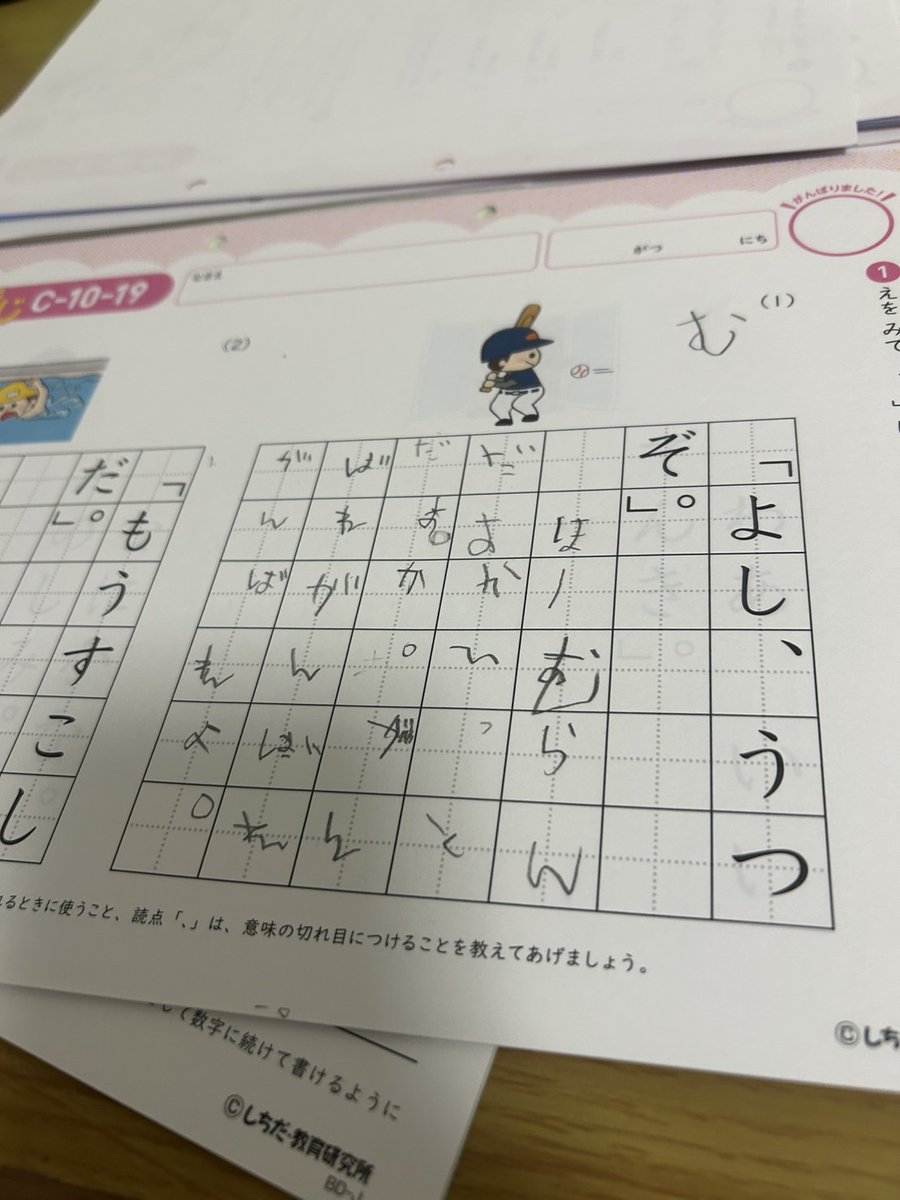 がんばりました!!
がつ にち
なまえ
じ C-10-19
1 えをみて
(1)
む
「よし、うつ
ぞ。」
ほーむらん
ばれがんばれ
がんばれよ。
(2)
「もうすこし
だ。」
るときに使うこと、読点「、」は、意味の切れ目につけることを教えてあげましょう。
©しち
て数字に続けて書けるように
©しちだ・教育研究所